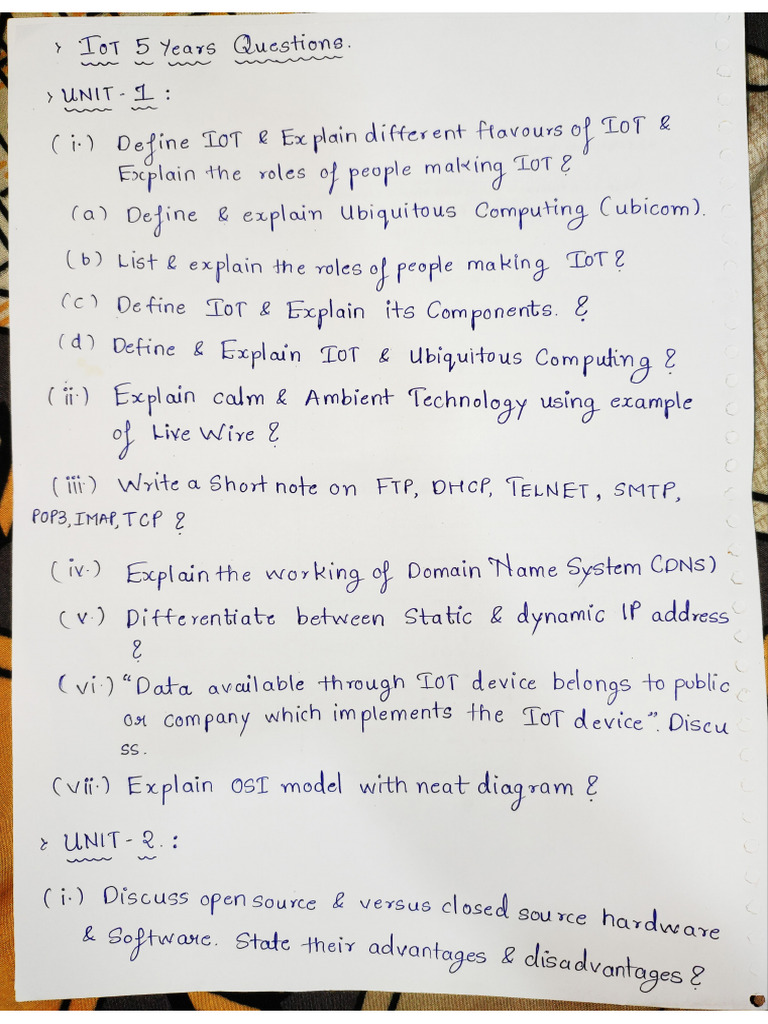 > IoT 5 Years Questions.
> UNIT - 1 :
(i.) Define IOT & Explain different flavours of IoT &
Explain the roles of people making IoT ?
(a) Define & explain Ubiquitous Computing (ubicom).
(b) List & explain the roles of people making IoT ?
(c) Define IoT & Explain its Components. ?
(d) Define & Explain IoT & Ubiquitous Computing ?
(ii.) Explain calm & Ambient Technology using example
of Live Wire ?
(iii.) Write a Short note on FTP, DHCP, TELNET, SMTP,
POP3, IMAP, TCP ?
(iv.) Explain the working of Domain Name System (DNS)
(v.) Differentiate between Static & dynamic IP address
?
(vi.) "Data available through IoT device belongs to public
or company which implements the IoT device". Discu
ss.
(vii.) Explain OSI model with neat diagram ?
> UNIT - 2. :
(i.) Discuss open source & versus closed source hardware
& Software. State their advantages & disadvantages ?